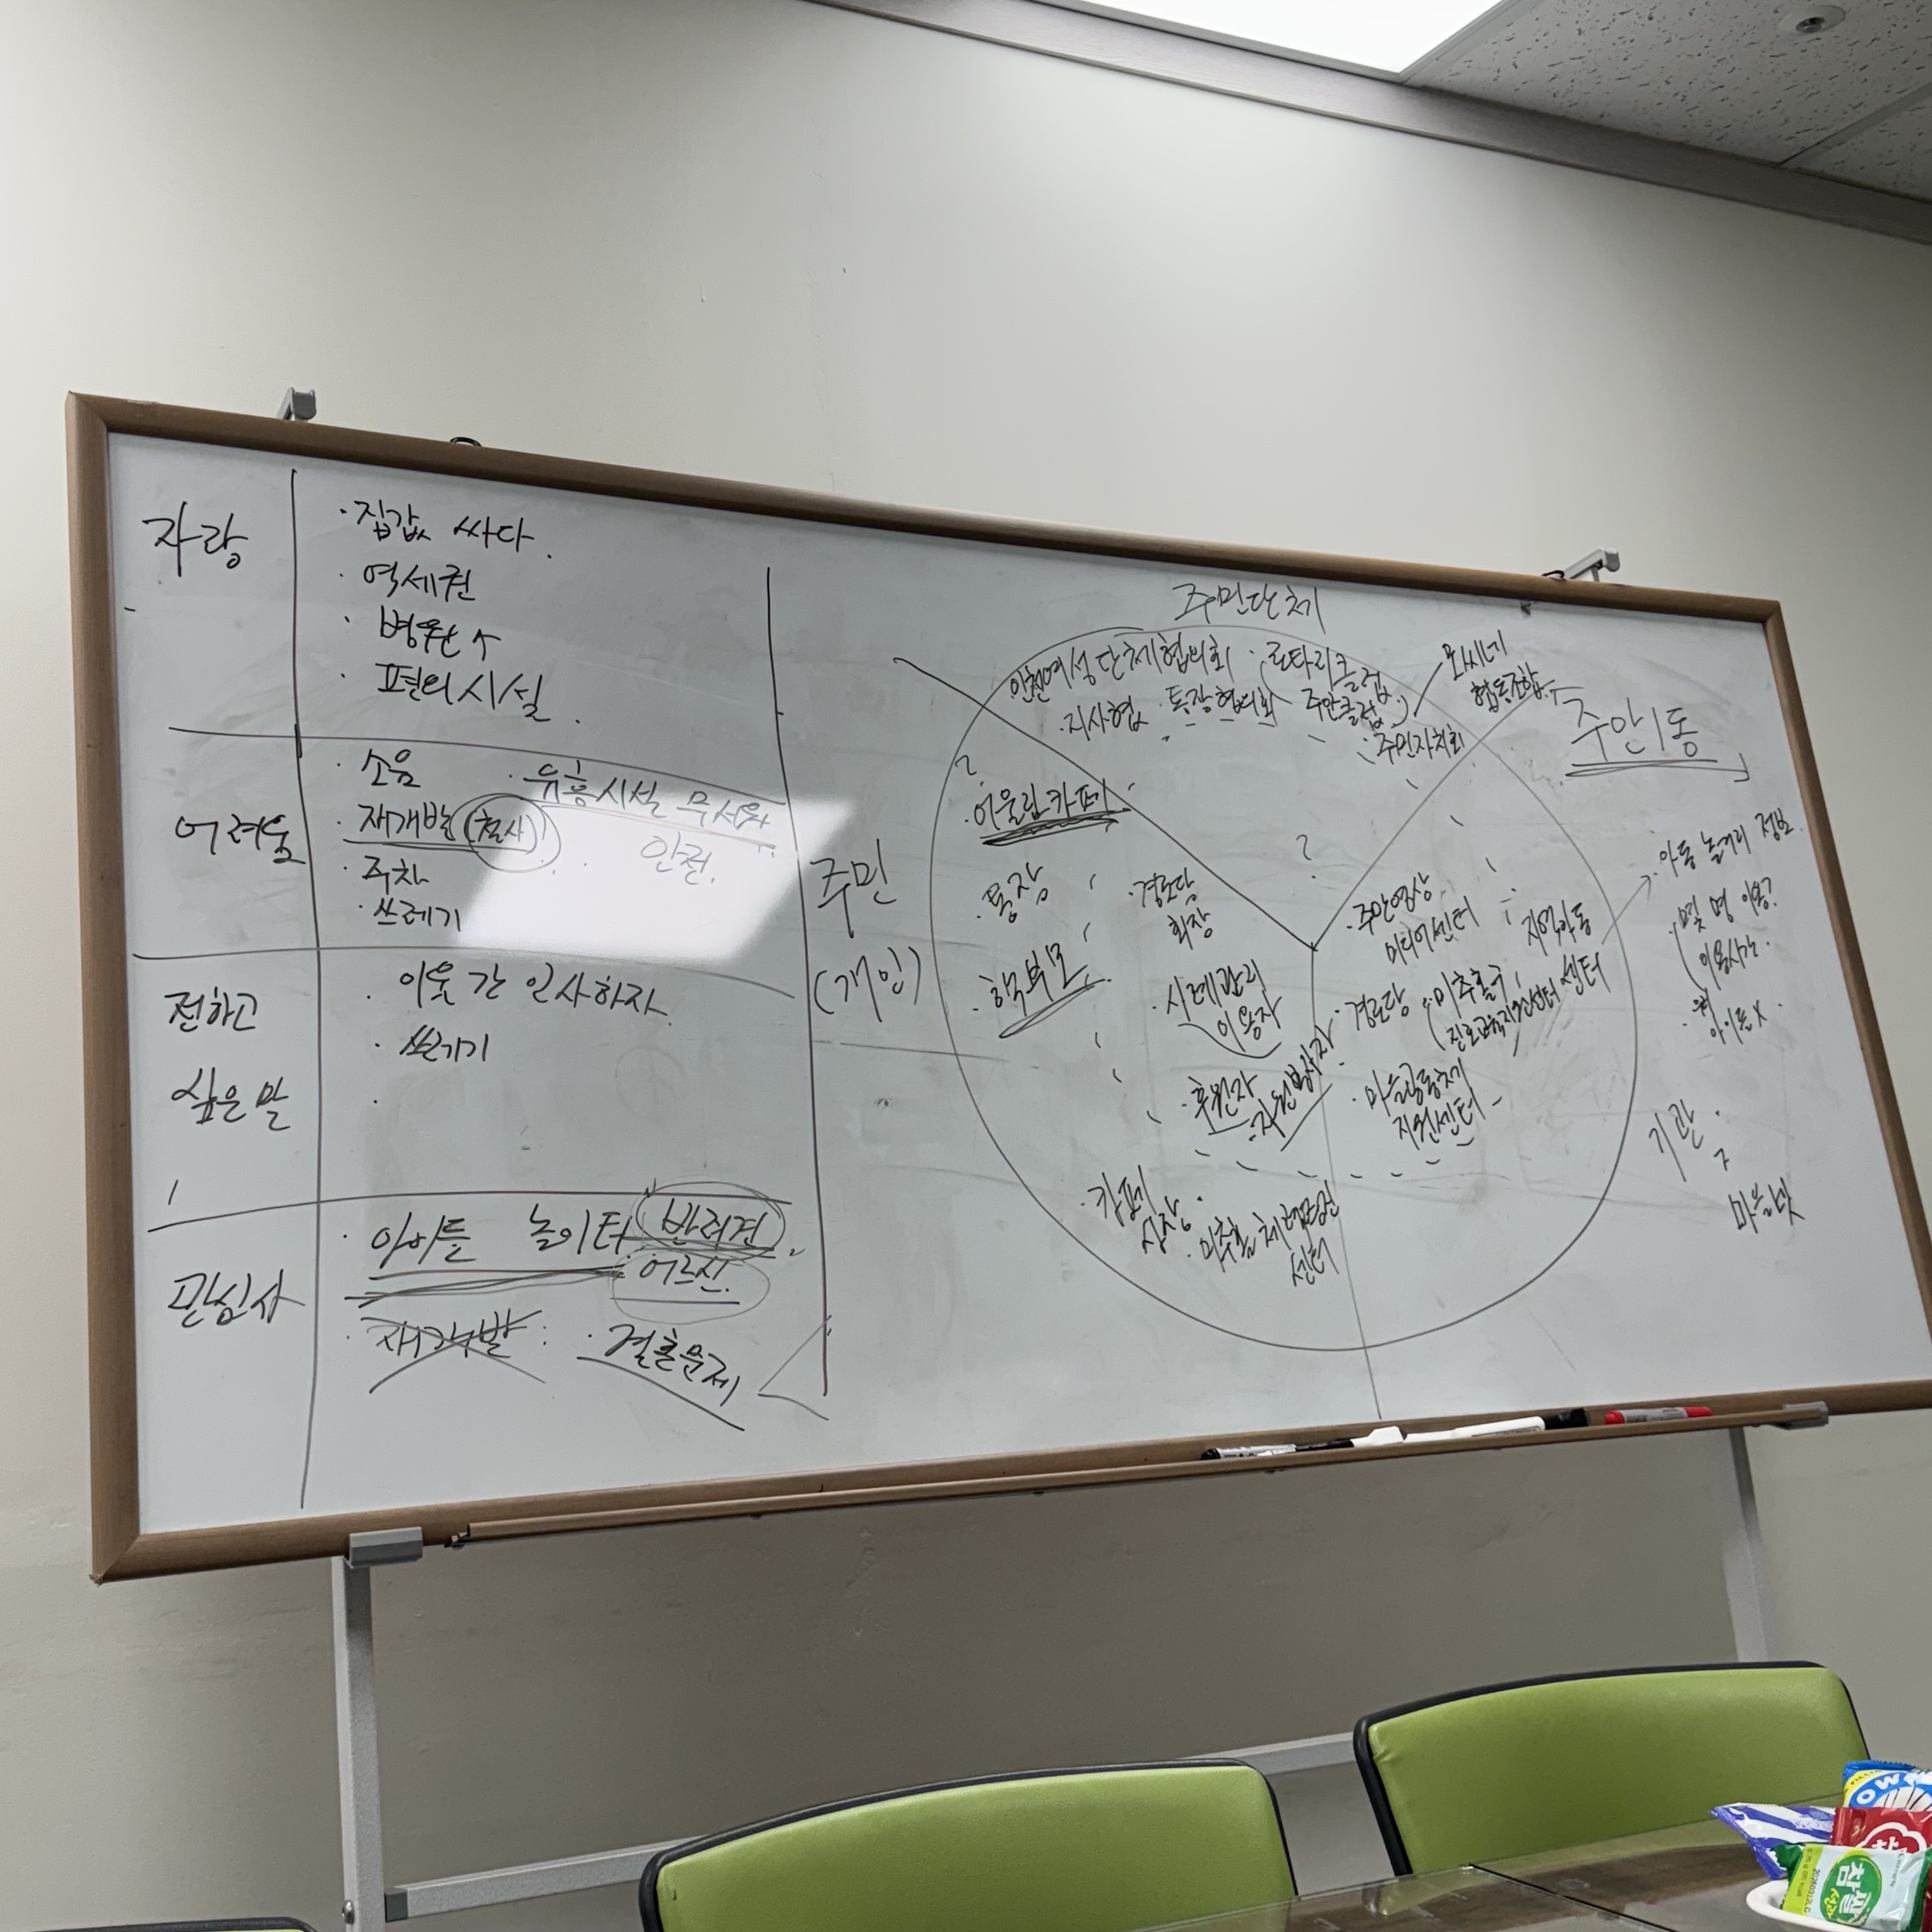 자랑
· 집값 싸다.
· 역세권
· 병원 ↑
· 편의시설.
어려움
· 소음
· 유흥시설 무서움
· 재개발 (철사)
· 안전.
· 주차
· 쓰레기
전하고
싶은 말
· 이웃간 인사하자.
· 쓰레기
관심사
· 아이들 놀이터 반려견
어르신
· 재개발
· 결혼문제
주민단체
인천여성단체협의회 · (로타리클럽
주안클럽)
· 지사협 · 통장협의회
· 주민자치회
협동조합
주안1동
주민
(개인)
?
· 어울림카페
· 통장
· 경로당
회장
· 학부모
· 사례관리
이용자
· 후원자
· 자원봉사자
· 카페
사장
· 미추홀 체력인증
센터
?
· 주안영상
미디어센터
· 지역아동
센터
· 경로당
· 미추홀구
(진로교육지원센터
· 마을공동체
지원센터
· 아동 놀거리 정보
· 몇 명 이용?
이용시간.
아이들 X
기관